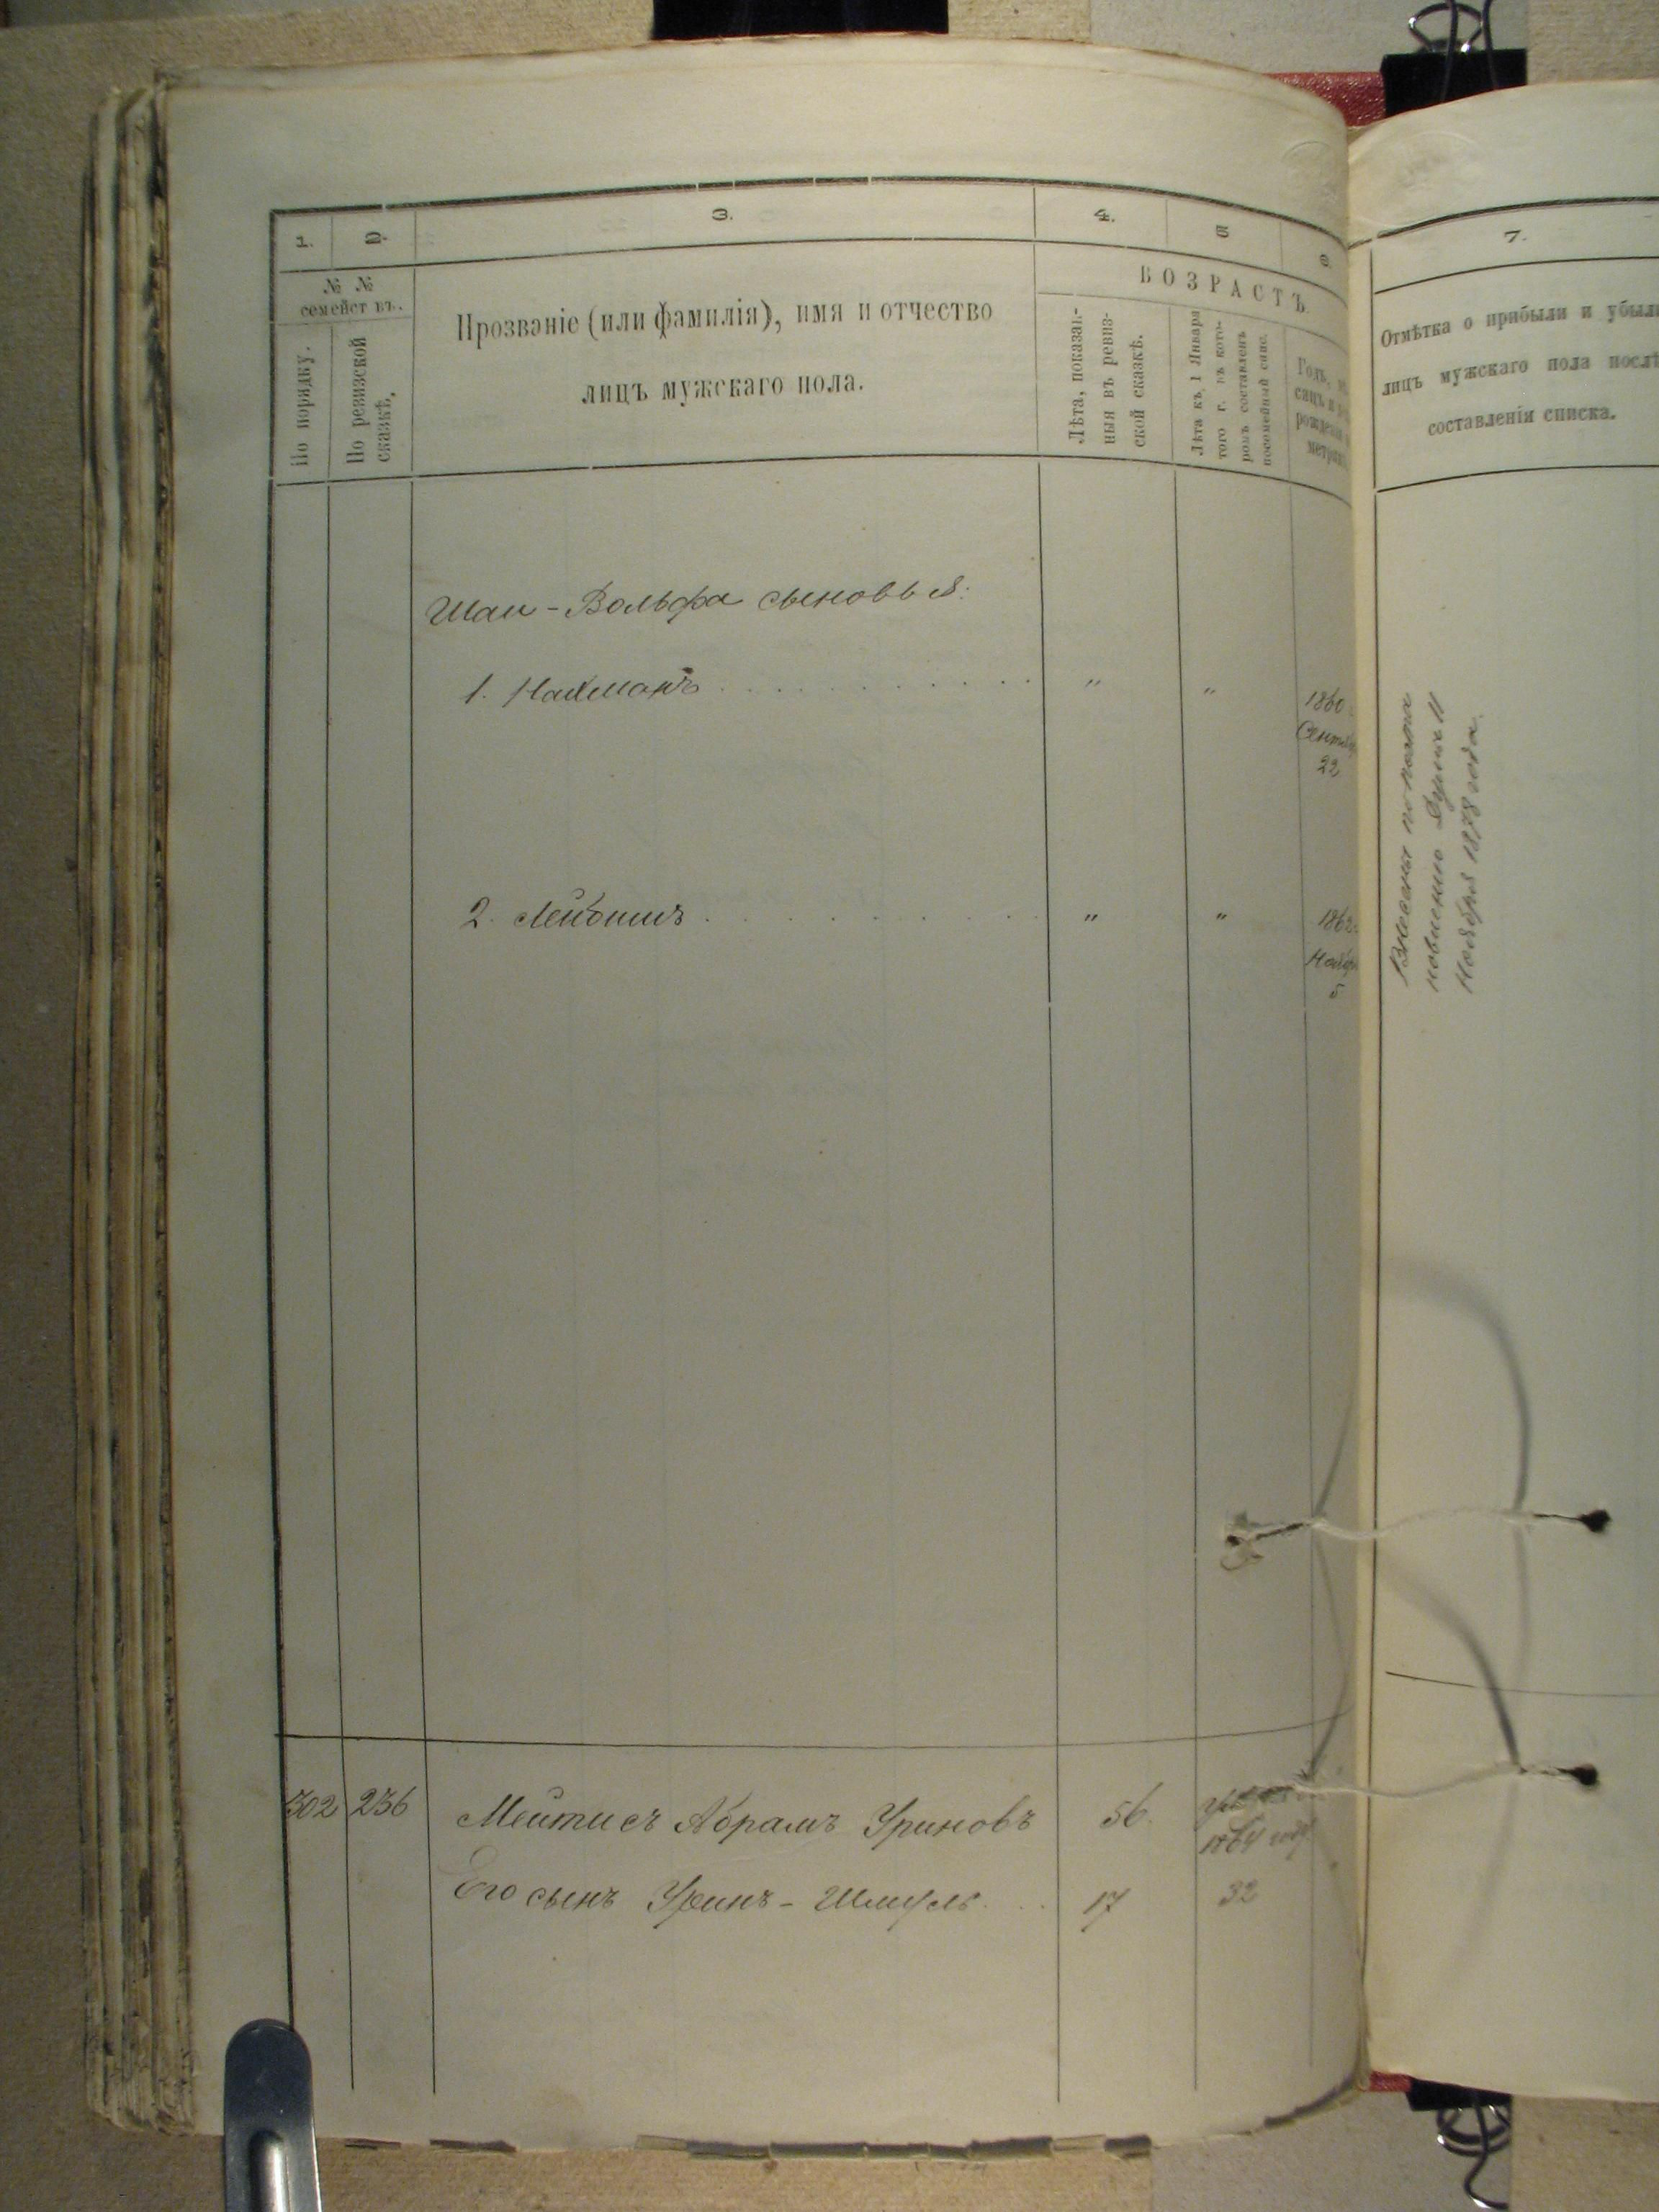 1.
2.
3.
4.
5
6
7.
№ №
семействъ.
По порядку.
По ревизской
сказкѣ.
Прозваніе (или фамилія), имя и отчество
лицъ мужскаго пола.
ВОЗРАСТЪ
Лѣта, показан-
ныя въ ревиз-
ской сказкѣ.
Лѣта къ 1 Января
того г. въ кото-
ромъ составленъ
посемейный спис.
Годъ,
рожденія
Отмѣтка о прибыли и убыли
лицъ мужскаго пола послѣ
составленія списка.
Шаи-Вольфа сыновья:
1. Нахманъ . . . . . . . . . . . " " 1860
Сентяб
22
2. Лейбишъ . . . . . . . . . . " " 1862
Нояб
5
Внесены по поста
новленію Думы 11
Ноября 1878 года.
302 236 Мейтисъ Абрамъ Уриновъ 56.
1864 году
Его сынъ Уринъ-Шмуль . . 17 32